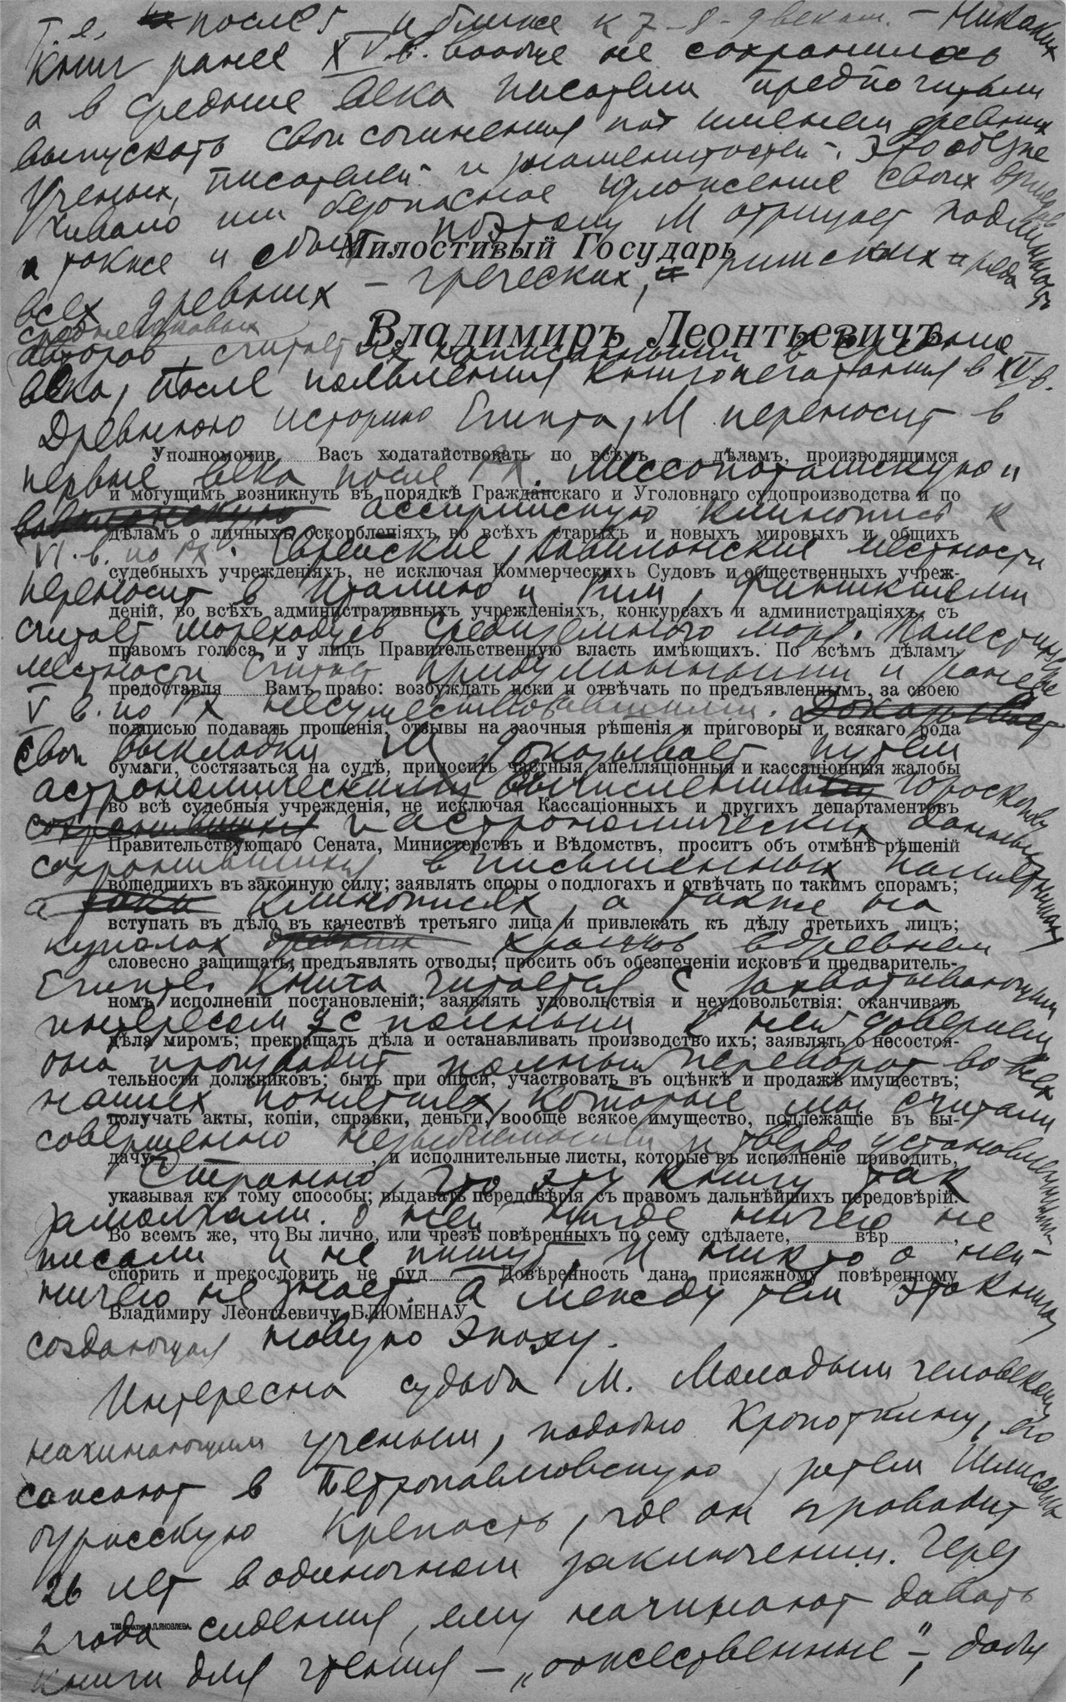 Т.е. после 5 и ближе к 7-8-9 векам. – Никаких
книг ранее XV в. вообще не сохранилось
а в средние века писатели предпочитали
выпускать свои сочинения под именем древних
ученых, писателей и знаменитостей. Это обезпе
чивало им безопасное изложение своих
а также и сбыт поэтому М отрицает подлинность
Милостивый Государь
всех древних – греческих, римских и ряда
средневековых
Владимиръ Леонтьевичъ
авторов, считает их написанными в средние
века, после появления книгопечатания в XV в.
Древнюю историю Египта, М переносит в
Уполномочив Васъ ходатайствовать по всѣмъ дѣламъ, производящимся
первые века после РХ. Мессопотамскую и
и могущимъ возникнуть въ порядкѣ Гражданскаго и Уголовнаго судопроизводства и по
вавилонскую ассирийскую клинопись к
дѣламъ о личныхъ оскорбленіяхъ во всѣхъ старыхъ и новыхъ мировыхъ и общихъ
VI в. по РХ. Еврейские, вавилонские местности
судебныхъ учрежденіяхъ, не исключая Коммерческихъ Судовъ и общественныхъ учреж-
переносит в Италию и Рим, финикиянами
деній, во всѣхъ административныхъ учрежденіяхъ, конкурсахъ и администраціяхъ, съ
считает мореходцев средиземного моря. Палестинские
правомъ голоса, и у лицъ Правительственную власть имѣющихъ. По всѣмъ дѣламъ
местности считает придуманными и ранее
предоставля Вамъ право: возбуждать иски и отвѣчать по предъявленнымъ, за своею
V в. по РХ несуществовавшими. Доказывает
подписью подавать прошенія, отзывы на заочныя рѣшенія и приговоры и всякаго рода
Свои выкладки М доказывает путем
бумаги, состязаться на судѣ, приносить частныя, апелляціонныя и кассаціонныя жалобы
астрономическими вычислениями гороскопов
во всѣ судебныя учрежденія, не исключая Кассаціонныхъ и другихъ департаментовъ
сохранившихся и астрономических данных
Правительствующаго Сената, Министерствъ и Вѣдомствъ, проситъ объ отмѣнѣ рѣшеній
сохранившихся в письменных памятниках
вошедшихъ въ законную силу; заявлять споры о подлогахъ и отвѣчать по такимъ спорамъ;
а клинописях, а также на
вступать въ дѣло въ качествѣ третьяго лица и привлекать къ дѣлу третьихъ лицъ;
куполах древних храмов в древнем
словесно защищать; предъявлять отводы; просить объ обезпеченіи исковъ и предваритель-
Египте. Книга читается с захватывающим
номъ исполненіи постановленій; заявлять удовольствія и неудовольствія: оканчивать
интересом и с полным к ней доверием
дѣла миромъ; прекращать дѣла и останавливать производство ихъ; заявлять о несостоя-
она производит полный переворот во всех
тельности должниковъ; быть при описи, участвовать въ оцѣнкѣ и продажѣ имуществъ;
наших понятиях, которые мы считали
получать акты, копіи, справки, деньги, вообще всякое имущество, подлежащіе въ вы-
совершенно незыблемыми и твердо установленными
дачу , и исполнительные листы, которые въ исполненіе приводить,
Странно, что эту книгу так
указывая къ тому способы; выдавать передовѣрія съ правомъ дальнѣйшихъ передовѣрій.
замолчали. О ней нигде ничего не
Во всемъ же, что Вы лично, или чрезъ повѣренныхъ по сему сдѣлаете, вѣр ,
писали и не пишут и никто о ней
спорить и прекословить не буд Довѣренность дана присяжному повѣренному
ничего не знает. А между тем эта книга
Владимиру Леонтьевичу БЛЮМЕНАУ
создающая новую эпоху.
Интересна судьба М. Молодым человеком
начинающим ученым, подобно Кропоткину, его
сажают в Петропавловскую, затем Шлиссель
бургскую крепость, где он проводит
26 лет в одиночном заключении. Через
2 года сидения, ему начинают давать
книги для чтения – „божественные“ –, дабы